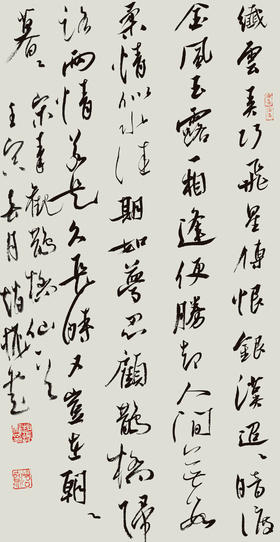 纖雲弄巧飛星傳恨銀漢迢々暗渡
金風玉露一相逢便勝却人間無數
柔情似水佳期如夢忍顧鵲橋歸
路兩情若是久長時又豈在朝々
暮々 宋秦觀鵲橋仙
壬寅 月